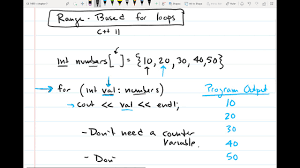 Range-Based for loops
C++ 11
int numbers[ ] = {10, 20, 30, 40, 50}
for (int val : numbers)
cout << val << endl;
Program Output
10
20
30
40
50
- Don't need a counter
variable.
- Don